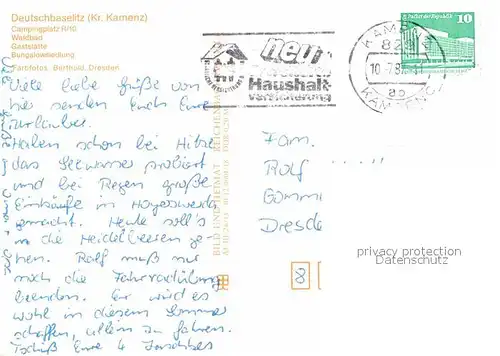 Deutschbaselitz (Kr. Kamenz)
Campingplatz R/10
Waldbad
Gaststätte
Bungalowsiedlung
Farbfotos: Berthold, Dresden
Viele liebe Grüße von
hier senden Euch Eure
Urlauber.
Haben schon bei Hitze
das Seewasser probiert
und bei Regen große
Einkäufe in Hoyerswerda
gemacht. Heute soll's
in die Heidelbeeren ge-
hen. Rolf muß nur
noch die Fahrradübung
beenden. Er wird es
wohl in diesem Sommer
schaffen, allein zu fahren.
Tschüß Eure 4
neu
Haushalt-
versicherung
KAMENZ
82
10.-7.8
ab
KAMENZ
10
BILD UND HEIMAT REICHENBACH
Fam.
Rolf
Gommi
Dresde
privacy protection
Datenschutz
8